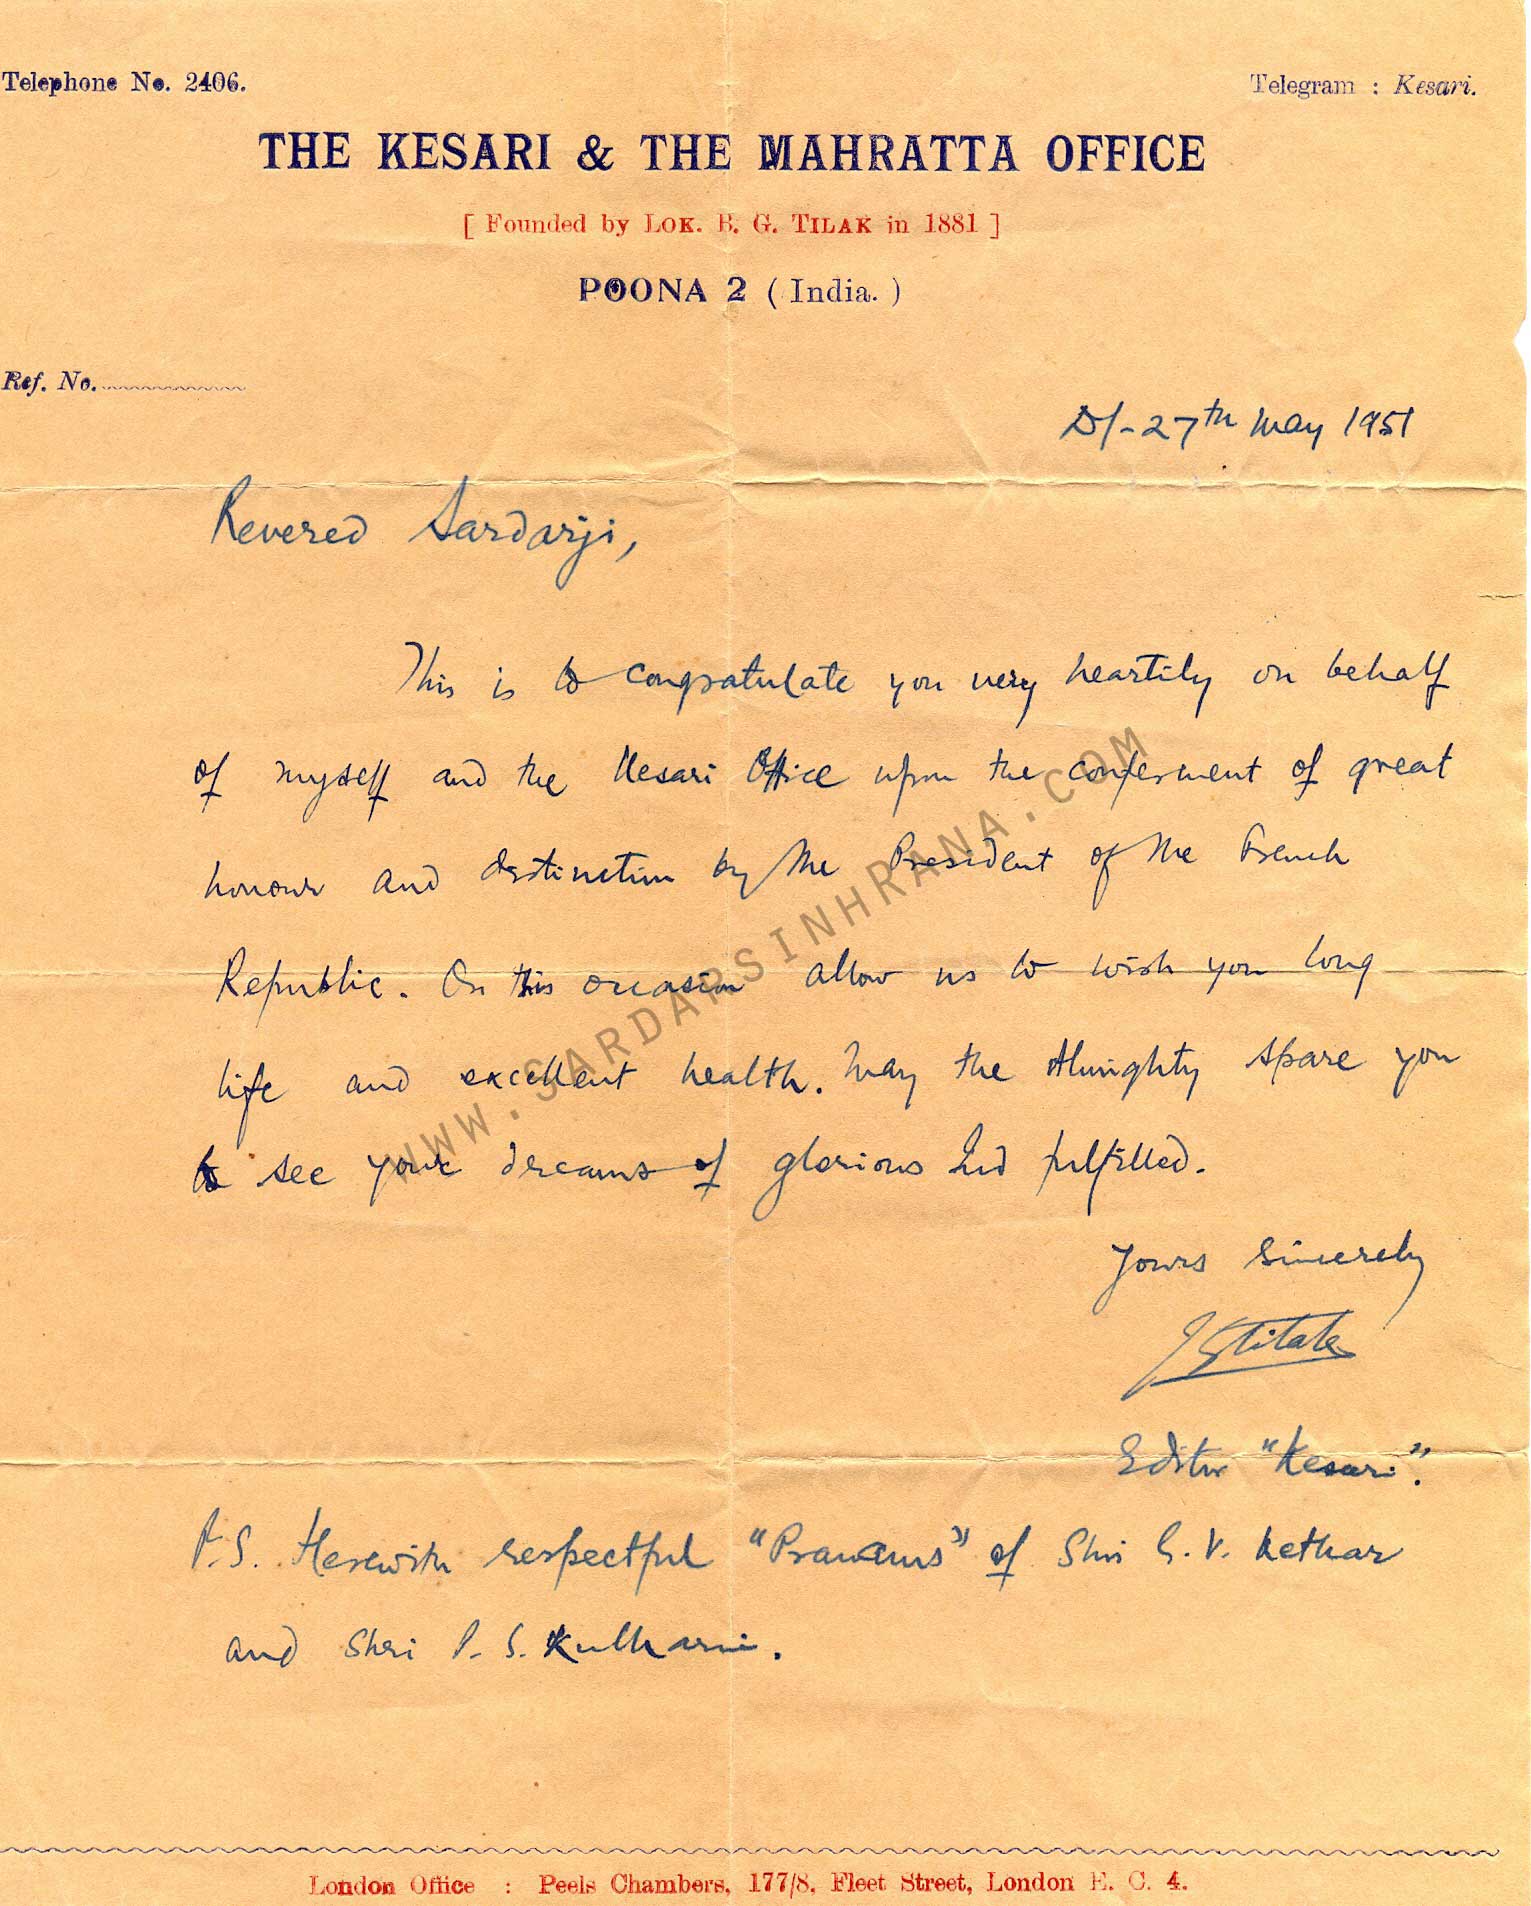 Telephone No. 2406.
Telegram : Kesari.
THE KESARI & THE MAHRATTA OFFICE
[ Founded by LOK. B. G. TILAK in 1881 ]
POONA 2 ( India. )
Ref. No.
D/- 27th May 1951
Revered Sardarji,
This is to congratulate you very heartily on behalf
of myself and the Kesari Office upon the conferment of great
honour and distinction by the President of the French
Republic. On this occasion allow us to wish you long
life and excellent health. May the Almighty spare you
to see your dreams of glorious Ind fulfilled.
Yours Sincerely
Editor "Kesari".
P.S. Herewith respectful "Pranams" of Shri G. V. Ketkar
and Shri P. S. Kulkarni.
London Office : Peels Chambers, 177/8, Fleet Street, London E. C. 4.
WWW.SARDARSINHRANA.COM